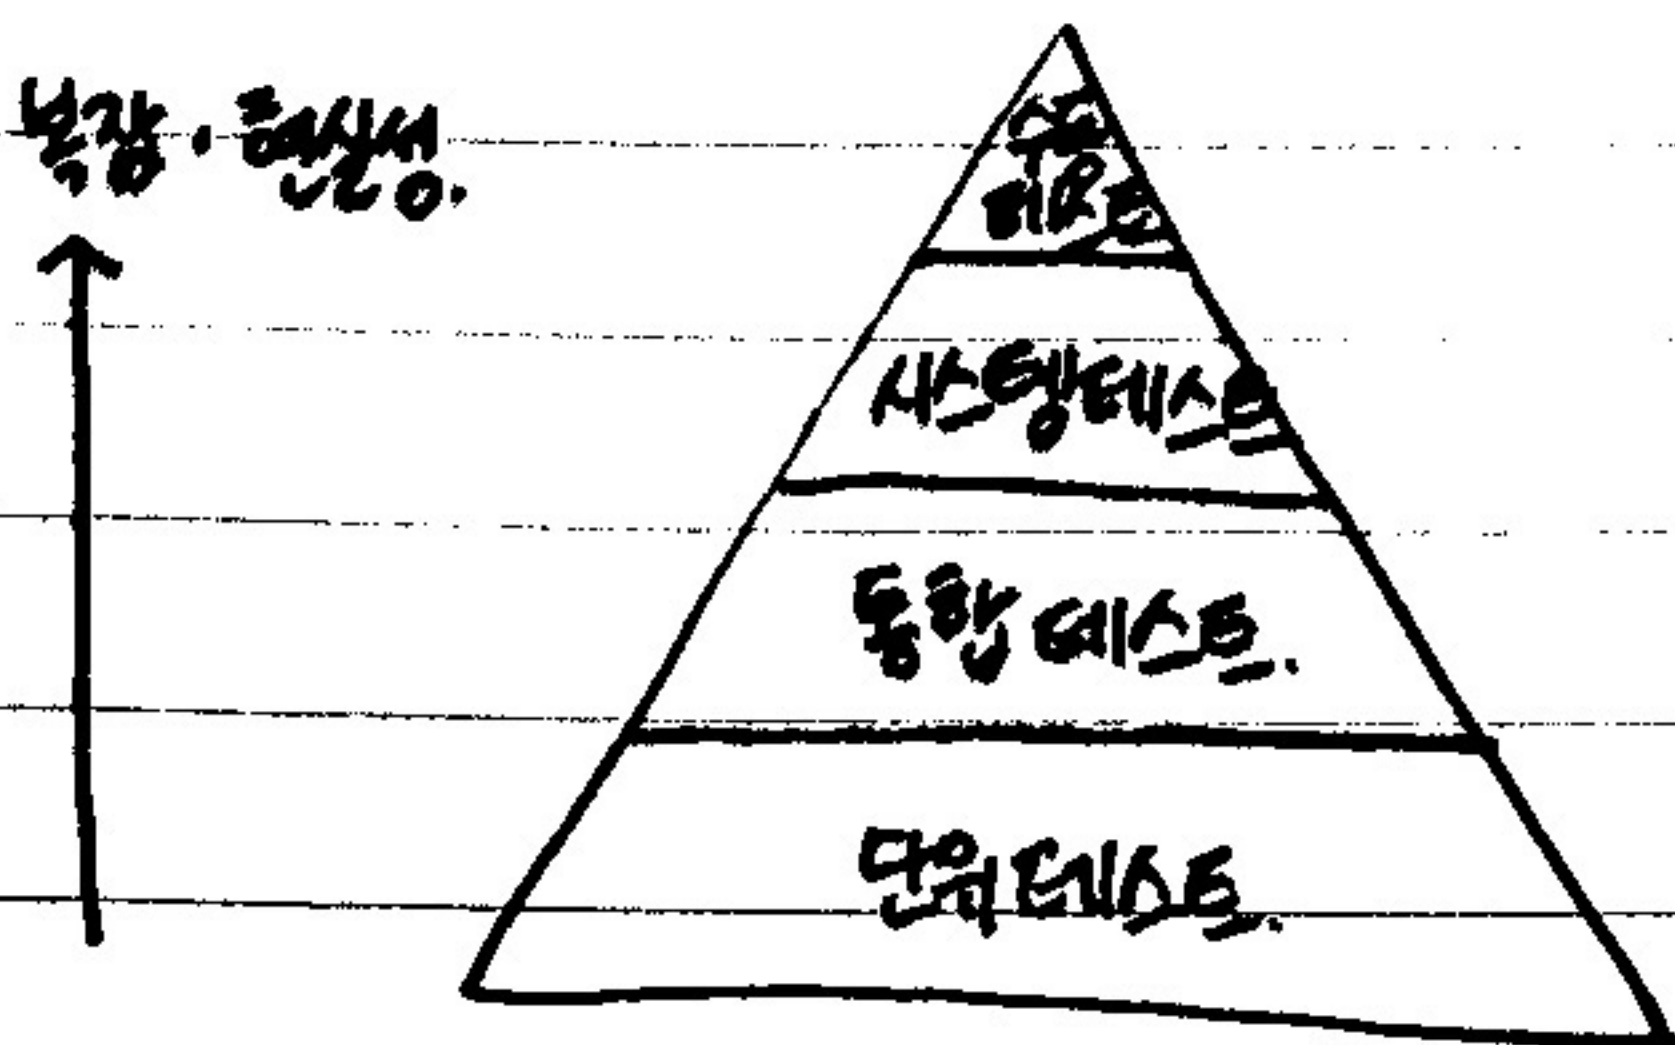 복잡·현실성.
수동
테스트
시스템테스트
통합 테스트.
단위 테스트.